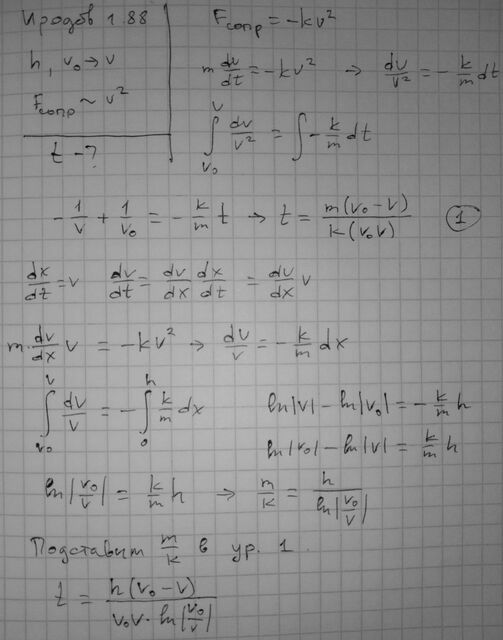 Иродов 1.88
h, v₀ → v
Fсопр ~ v²
t - ?
Fсопр = -kv²
m dv/dt = -kv² → dv/v² = - k/m dt
∫_{v₀}^{v} dv/v² = ∫ - k/m dt
- 1/v + 1/v₀ = - k/m t → t = m(v₀ - v)/k(v₀v) ①
dx/dt = v dv/dt = dv/dx dx/dt = dv/dx v
m · dv/dx v = -kv² → dv/v = - k/m dx
∫_{v₀}^{v} dv/v = - ∫_{0}^{h} k/m dx
ln|v| - ln|v₀| = - k/m h
ln|v₀| - ln|v| = k/m h
ln|v₀/v| = k/m h → m/k = h/ln|v₀/v|
Подставим m/k в ур. 1.
t = h(v₀ - v)/v₀v · ln|v₀/v|